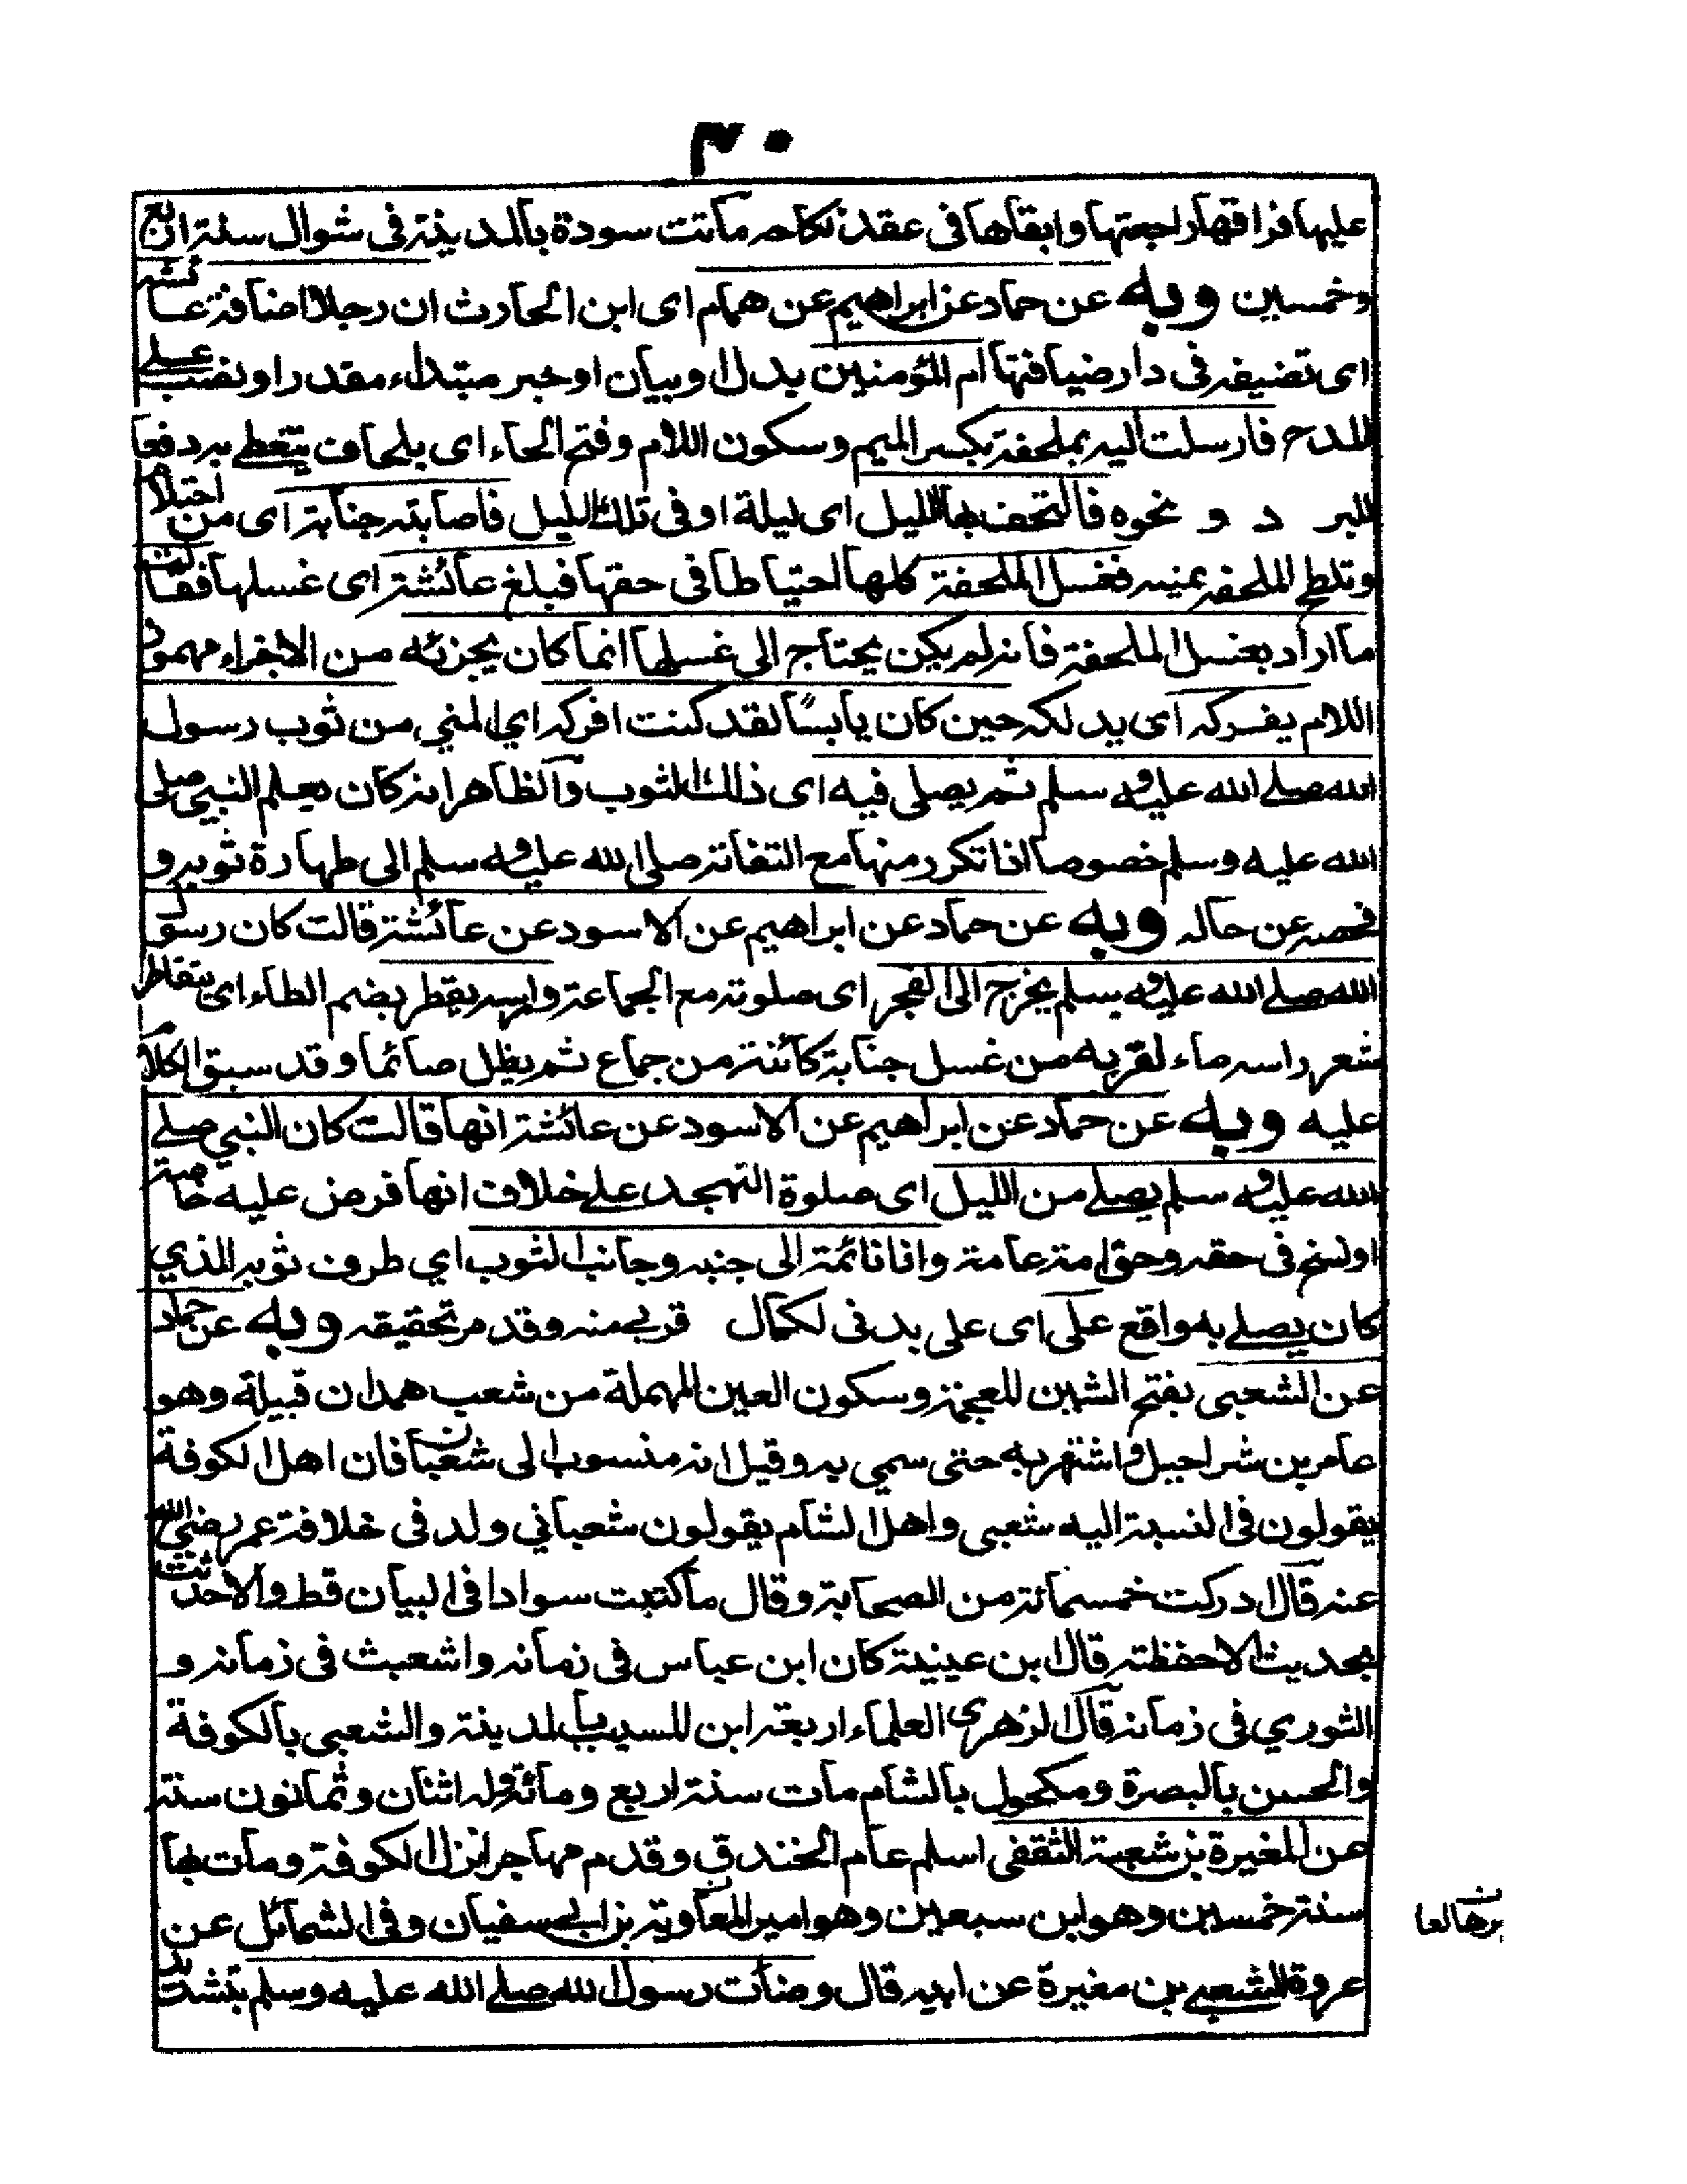 ٣٠
عليها فراقها راجعتها وابقاها فى عقد نكاحه ماتت سودة بالمدينة فى شوال سنة اربع
وخمسين وبه عن حماد عن ابراهيم عن همام اى ابن الحارث ان رجلا اضافته عائشه
اى تضيفه فى دار ضيافتها ام المؤمنين بدل او بيان او خبر مبتداء مقدر او نصب على
للمدح فارسلت اليه بملحفة بكسر الميم وسكون اللام وفتح الحاء اى بلحاف يتغطى به دفعا
للبر د و نحوه فالتحف بها الليل اى ليلة او فى تلك الليل فاصابته جنابة اى من احتلام
وتلطخ الملحفه بمنيه فغسل الملحفة كلها احتياطا فى حقها فبلغ عائشة اى غسلها فقالت
ما اراد بغسل الملحفة فانه لم يكن يحتاج الى غسلها انما كان يجزئه من الاجزاء مهموز
اللام يفركه اى يدلكه حين كان يابسًا لقد كنت افركه اي المني من ثوب رسول
الله صلى الله عليه وسلم ثم يصلى فيه اى ذلك الثوب والظاهر انه كان بعلم النبي صلى
الله عليه وسلم خصوصا اذا تكرر منها مع التفاته صلى الله عليه وسلم الى طهارة ثوبه و
فحصه عن حاله وبه عن حماد عن ابراهيم عن الاسود عن عائشة قالت كان رسول
الله صلى الله عليه وسلم يخرج الى الفجر اى صلوته مع الجماعة وراسه يقطر بضم الطاء اى يتقاطر
شعر راسه ماء لقربه من غسل جنابة كائنة من جماع ثم يظل صائما وقد سبق الكلام
عليه وبه عن حماد عن ابراهيم عن الاسود عن عائشة انها قالت كان النبي صلى
الله عليه وسلم يصلى من الليل اى صلوة التهجد على خلاف انها فرض عليه خاصة
او نسخ فى حقه وحق امته عامة وانا نائمة الى جنبه وجانب الثوب اي طرف ثوبه الذي
كان يصلى به واقع على اى على بدنى لكمال قربى منه وقد مر تحقيقه وبه عن حماد
عن الشعبى بفتح الشين المعجمة وسكون العين المهملة من شعب همدان قبيلة وهو
عامر بن شراحبيل واشتهر به حتى سمي به وقيل انه منسوب الى شعبان فان اهل الكوفة
يقولون فى النسبة اليه شعبى واهل الشام يقولون شعباني ولد فى خلافة عمر رضى الله
عنه قال ادركت خمسمائة من الصحابة وقال ما كتبت سوادا فى البيان قط والاحدثت
بحديث الاحفظته قال ابن عيينة كان ابن عباس فى زمانه واشعبث فى زمانه و
الثوري فى زمانه قال الزهرى العلماء اربعة ابن المسيب بالمدينة والشعبى بالكوفة
والحسن بالبصرة ومكحول بالشام مات سنة اربع ومائة وله اثنان وثمانون سنة
عن المغيرة بن شعبة الثقفى اسلم عام الخندق وقدم مهاجرا نزل الكوفة ومات بها
سنة خمسين وهو ابن سبعين وهو امير المعاوية بن ابى سفيان وفى الشمائل عن
عروة الشعبى بن مغيرة عن ابيه قال وضات رسول الله صلى الله عليه وسلم بتشديد